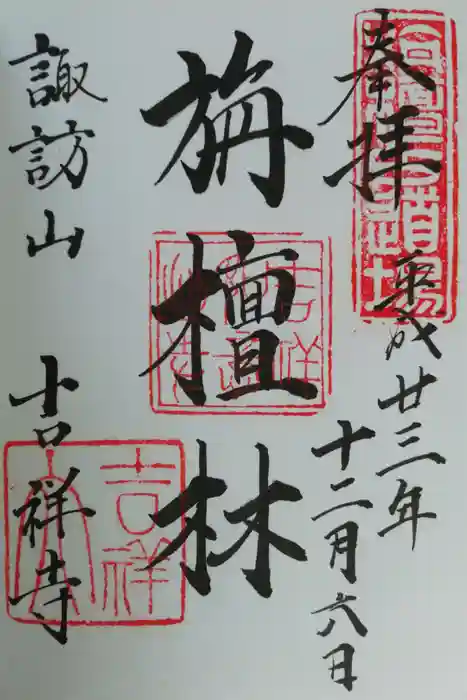 奉拝
平成廿三年
十二月六日
旃檀林
諏訪山
吉祥寺
吉祥